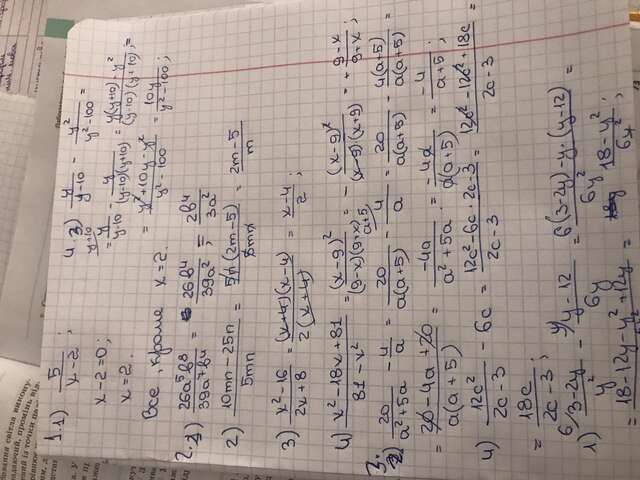 1.1) 5/(x-2) ;
x-2=0;
x=2.
Все, кроме x=2.
4.3) y/(y-10) - y²/(y²-100) =
= y/(y-10) - y/((y-10)(y+10)) = (y(y+10)-y²)/((y-10)(y+10)) =
= (y²+10y-y²)/(y²-100) = 10y/(y²-100) ;
2.1) 26a⁵b⁸/39a⁷b⁴ = 26b⁴/39a² = 2b⁴/3a²
2) (10mn-25n)/5mn = 5n(2m-5)/5mn = (2m-5)/m
3) (x²-16)/(2x+8) = (x+4)(x-4)/2(x+4) = (x-4)/2 ;
4) (x²-18x+81)/(81-x²) = (x-9)²/((9-x)(9+x)) = - (x-9)²/((x-9)(x+9)) = + (9-x)/(9+x) ;
3.
2) 20/(a²+5a) - 4/a = 20/(a(a+5)) - 4/a = 20/(a(a+5)) - 4(a+5)/(a(a+5)) =
= (20-4a+20)/(a(a+5)) = -4a/(a²+5a) = -4a/(a(a+5)) = -4/(a+5) ;
4) 12c²/(2c-3) - 6c = (12c²-6c·2c-3)/(2c-3) = (12c²-12c²+18c)/(2c-3) =
= 18c/(2c-3) ;
1) (3-2y)/y² - (y-12)/6y = (6(3-2y)-y·(y-12))/6y² =
= 18-12y-y²+12y = (18-y²)/6y² ;